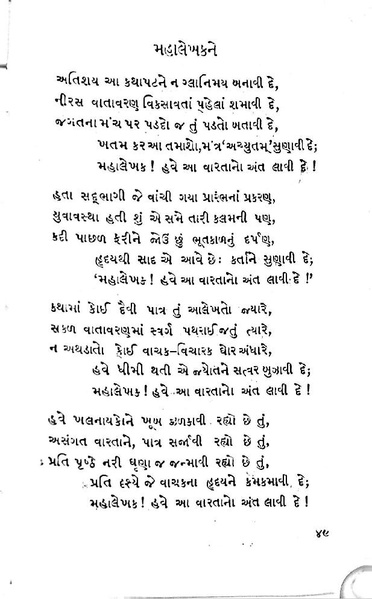 મહાલેખકને
અતિશય આ કથાપટને ન ગ્લાનિમય બનાવી દે,
નીરસ વાતાવરણ વિકસાવતાં પહેલાં શમાવી દે,
જગતના મંચ પર પડદો જ તું પડતો બતાવી દે,
ખતમ કર આ તમાશો, મંત્ર ‘અચ્યુતમ્’ સુણાવી દે;
મહાલેખક! હવે આ વારતાનો અંત લાવી દે!
હતા સદ્ભાગી જે વાંચી ગયા પ્રારંભનાં પ્રકરણ,
યુવાવસ્થા હતી શું એ સમે તારી કલમની પણ,
કદી પાછળ ફરીને જોઉં છું ભૂતકાળનું દર્પણ,
હૃદયથી સાદ એ આવે છેઃ કર્તાને સુણાવી દે;
‘મહાલેખક! હવે આ વારતાનો અંત લાવી દે!’
કથામાં કોઈ દૈવી પાત્ર તું આલેખતો જ્યારે,
સકળ વાતાવરણમાં સ્વર્ગ પથરાઈ જતું ત્યારે,
ન અથડાતો કોઈ વાચક–વિચારક ઘોર અંધારે,
હવે ધીમી થતી એ જ્યોતને સત્વર બુઝાવી દે;
મહાલેખક! હવે આ વારતાનો અંત લાવી દે!
હવે ખલનાયકોને ખૂબ ઝળકાવી રહ્યો છે તું,
અસંગત વારતાને, પાત્ર સર્જાવી રહ્યો છે તું,
પ્રતિ પૃષ્ઠે નરી ઘૃણા જ જન્માવી રહ્યો છે તું,
પ્રતિ દૃશ્યે જે વાચકના હૃદયને કમકમાવી દે;
મહાલેખક! હવે આ વારતાનો અંત લાવી દે!
૪૯